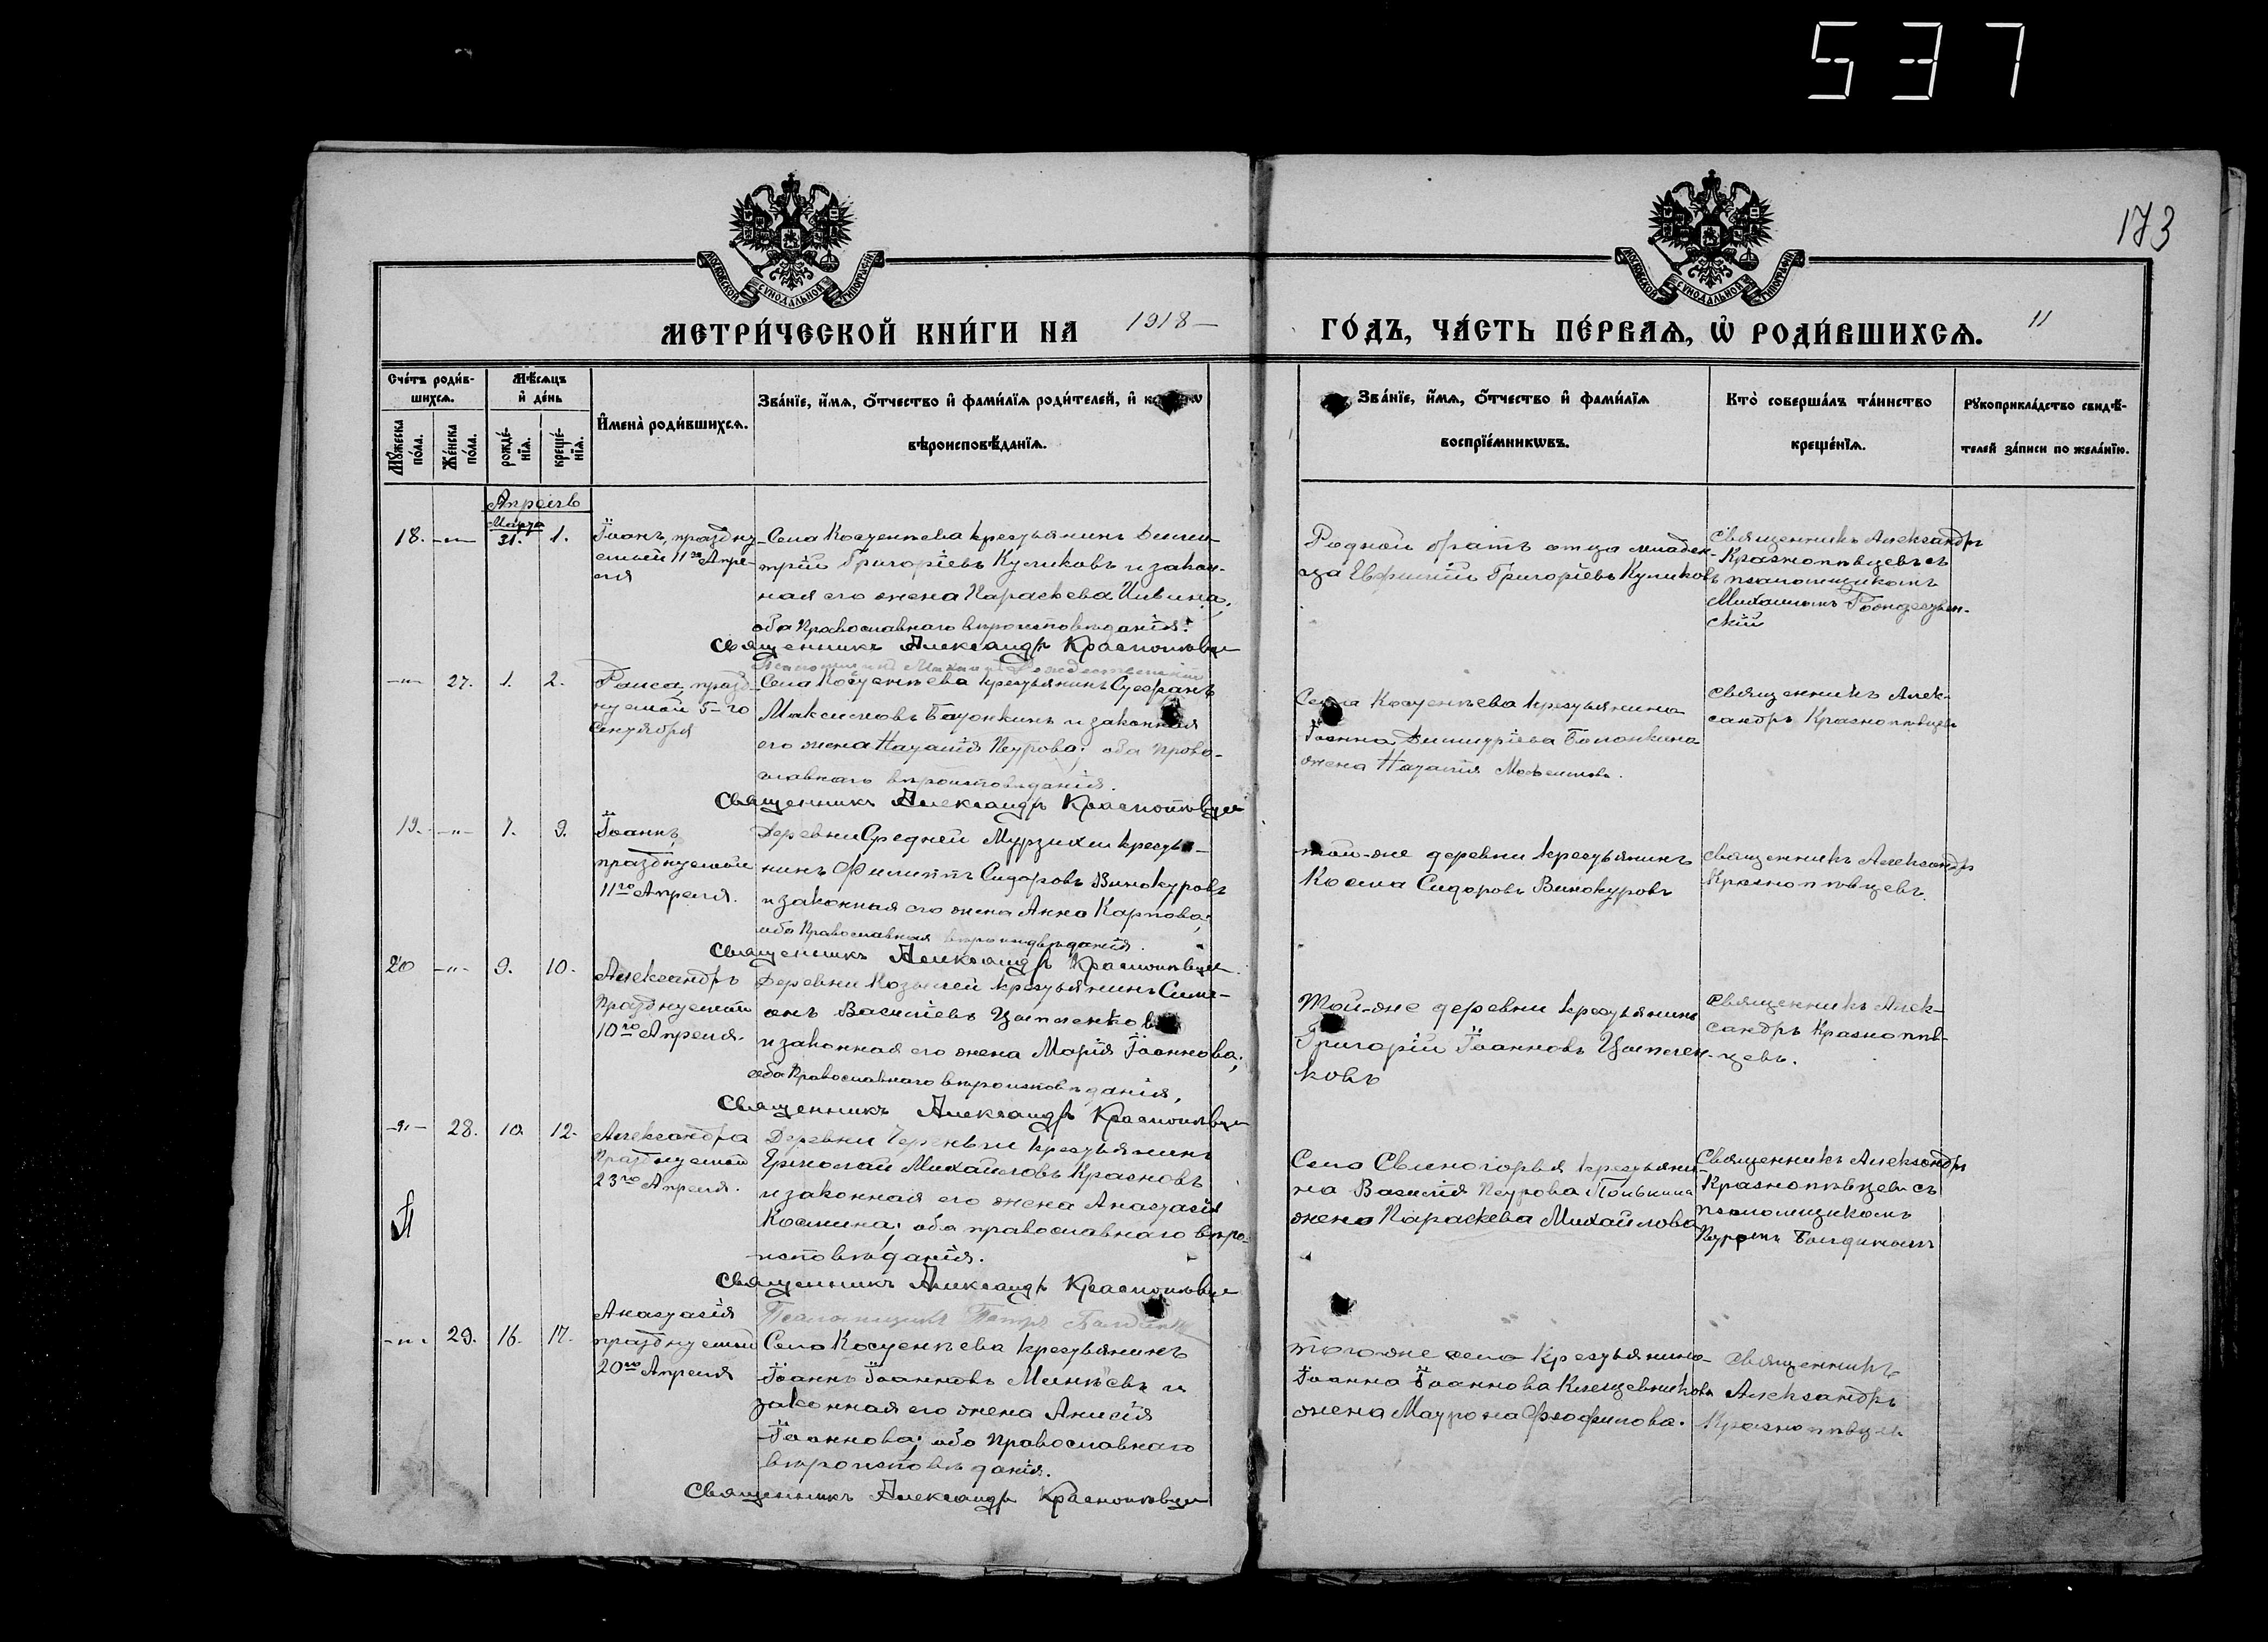 537
173
МОСКОВСКОЙ СУНОДАЛЬНОЙ ТИПОГРАФІИ
МОСКОВСКОЙ СУНОДАЛЬНОЙ ТИПОГРАФІИ
МЕТРИ́ЧЕСКОЙ КНИ́ГИ НА 1918 —
ГО́ДЪ, ЧА́СТЬ ПЕ́РВАѦ, Ѡ҆ РОДИ́ВШИХСѦ. 11
Сче́тъ роди́в-
шихсѧ.
Мѣ́сѧцъ
и҆ де́нь
Мꙋ́жеска
по́ла.
Же́нска
по́ла.
рожде́-
нїѧ.
креще́-
нїѧ.
И҆мена̀ роди́вшихсѧ.
Зва́нїе, и҆́мѧ, ѻ҆́тчество и҆ фами́лїѧ роди́телей, и҆
вѣроисповѣ́данїѧ.
Зва́нїе, и҆́мѧ, ѻ҆́тчество и҆ фами́лїѧ
воспрїе́мникѡвъ.
Кто̀ соверша́лъ та́инство
креще́нїѧ.
Рꙋкоприкла́дство свидѣ́-
телей за́писи по жела́нїю.
Апрель
Марта
18. -"- 31. 1.
Іоаннъ, праздну-
емый 11го Апре-
ля
Села Костенѣева крестьянинъ Дими-
трій Григоріевъ Куликовъ и закон-
ная его жена Параскева
оба Православнаго вѣроисповѣданія.
Священникъ Александръ Краснопѣвцев
Псаломщикъ Михаил Рождественский
Родной братъ отца младен-
ца Евфимій Григоріевъ Куликовъ
Священникъ Александръ
Краснопѣвцевъ съ
псаломщикомъ
Михаиломъ Рождествен-
скій
-"- 27. 1. 2.
Раиса, празд-
нуемой 5-го
Сентября
Села Костенѣева крестьянинъ Стефанъ
Максимовъ Батонкинъ и законная
его жена Наталія Петрова; оба право-
славнаго вѣроисповѣданія.
Священникъ Александръ Краснопѣвцев
Села Костенѣева крестьянина
Іоанна Димитріева
жена Наталія
Священникъ Алек-
сандръ Краснопѣвцевъ
19. -"- 7. 9.
Іоаннъ,
празднуемый
11го Апреля.
Деревни Средней Мурзихи крестья-
нинъ Филиппъ Сидоровъ Винокуровъ
и законная его жена Анна Карпова;
оба Православнаго вѣроисповѣданія.
Священникъ Александръ Краснопѣвцев
той-же деревни крестьянинъ
Косма Сидоровъ Винокуровъ
Священникъ Александръ
Краснопѣвцевъ.
20 -"- 9. 10.
Александръ
Празднуемый
10го Апреля.
Деревни крестьянинъ Симе-
онъ Василіевъ
и законная его жена Марія Іоаннова;
оба Православнаго вѣроисповѣданія,
Священникъ Александръ Краснопѣвцев
Той-же деревни крестьянинъ
Григорій Іоанновъ
ковъ
Священникъ Алек-
сандръ Краснопѣв-
цевъ.
-"- 28. 10. 12.
Александра
Празднуемой
23го Апреля.
Деревни крестьянинъ
Ермолай Михайловъ Красновъ
и законная его жена Анастасія
Космина; оба православнаго вѣро-
исповѣданія.
Священникъ Александръ Краснопѣвцев
Псаломщикъ Петръ Балдинъ
Села Свиногорья крестьяни-
на Василія Петрова
жена Параскева Михайлова
Священникъ Александръ
Краснопѣвцевъ съ
псаломщикомъ
Петромъ Балдинымъ
-"- 29. 16. 17.
Анастасія
празднуемой
20го Апреля
Села Костенѣева крестьянинъ
Іоаннъ Іоанновъ Минѣевъ и
законная его жена Анисія
Іоаннова; оба Православнаго
вѣроисповѣданія.
Священникъ Александръ Краснопѣвцев
того-же села крестьянина
Іоанна Іоаннова Клещевникова
жена Матрона Феофилова.
Священникъ
Александръ
Краснопѣвцевъ